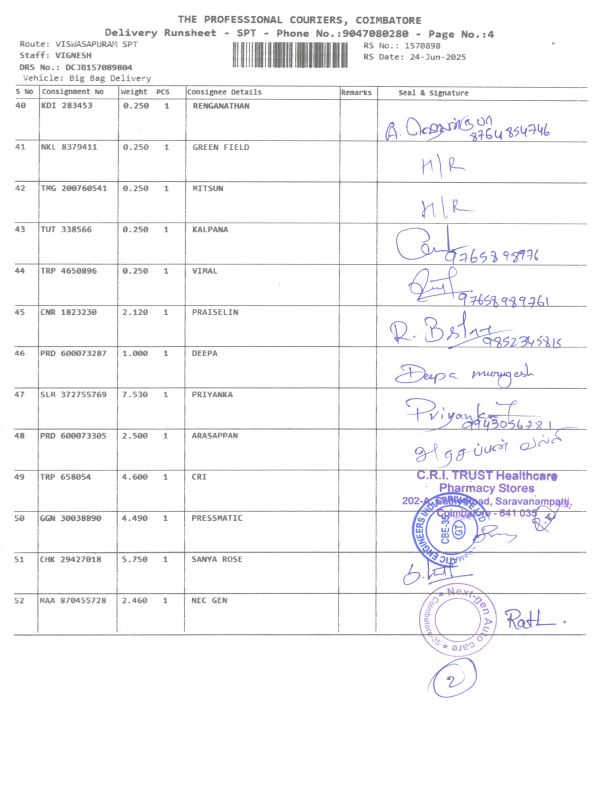 THE PROFESSIONAL COURIERS, COIMBATORE
Delivery Runsheet - SPT - Phone No.:9047080280 - Page No.:4
Route: VISWASAPURAM SPT
RS No.: 1570898
Staff: VIGNESH
RS Date: 24-Jun-2025
DRS No.: DCJB157089804
Vehicle: Big Bag Delivery
S No Consignment No Weight PCS Consignee Details Remarks Seal & Signature
40 KDI 283453 0.250 1 RENGANATHAN
A.
8764854746
41 NKL 8379411 0.250 1 GREEN FIELD H/R
42 TMG 200760541 0.250 1 MITSUN H/R
43 TUT 338566 0.250 1 KALPANA
9765898976
44 TRP 4650896 0.250 1 VIMAL
97658989761
45 CNR 1823230 2.120 1 PRAISELIN
R.
9852345815
46 PRD 600073287 1.000 1 DEEPA Deepa murugesh
47 SLM 372755769 7.530 1 PRIYANKA Priyanka
9943056281
48 PRD 600073305 2.500 1 ARASAPPAN
49 TRP 658054 4.600 1 CRI
C.R.I. TRUST Healthcare
Pharmacy Stores
Saravanampatti,
Coimbatore - 641 035
50 GGN 30038890 4.490 1 PRESSMATIC
CBE-35
GT
51 CHK 29427018 5.750 1 SANYA ROSE
52 MAA 870455728 2.460 1 NEC GEN
Next-gen Auto care
Coimbatore-35
2